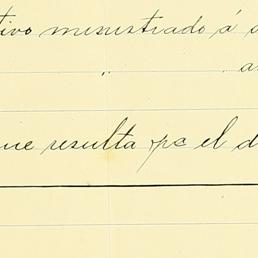 tivo ministrado á
"
que resulta pc el d